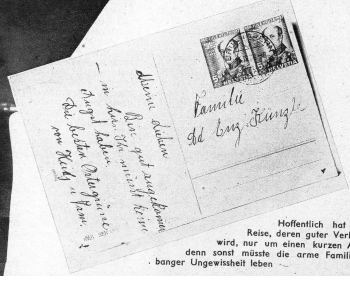 Meine Lieben
Bin gut angekommen
Ihr müsst keine
Angst haben
Die besten Ostergrüsse
von Heidy u. Fam.
Familie
Enz. Künzle
Hoffentlich hat
Reise, deren guter Verl
wird, nur um einen kurzen A
denn sonst müsste die arme Famili
banger Ungewissheit leben